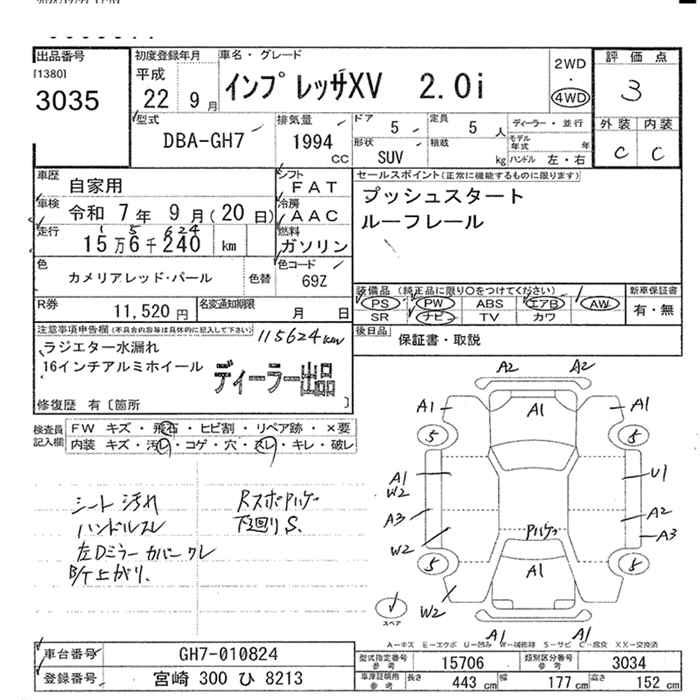 出品番号
[1380]
3035
初度登録年月
平成
22 9月
車名・グレード
インプレッサXV 2.0i
2WD
・
4WD
評価点
3
外装 内装
C C
型式
DBA-GH7
排気量
1994
CC
ドア
5
定員
5 人
形状
SUV
積載
kg
ディーラー・並行
モデル年式 年
ハンドル 左・右
車歴
自家用
シフト
FAT
車検
令和 7年 9月(20日)
冷房
AAC
走行
15万6千240 km
1 5 624
燃料
ガソリン
色
カメリアレッド・パール
色替
色コード
69Z
R券
11,520円
名変通知期限
月 日
セールスポイント(正常に機能するものに限ります)
プッシュスタート
ルーフレール
装備品(純正品に限り○をつけてください)
PS PW ABS エアB AW
SR ナビ TV カワ
新車保証書
有・無
後日品
保証書・取説
注意事項申告欄(不具合内容等は具体的に記入して下さい)
115624km
ラジエター水漏れ
16インチアルミホイール
ディーラー出品
修復歴 有〔箇所 〕
検査員記入欄
FW キズ・飛石・ヒビ割・リペア跡・×要
内装 キズ・汚れ・コゲ・穴・スレ・キレ・破レ
シート汚れ
ハンドルスレ
左Dミラーカバーワレ
B/T上がり.
Rスポアハゲ
下廻りS.
A2 A2
A1 A1 A1
5 5
A1
W2
U1
A3
A2
A3
W2
アハゲ
5 5
A1
W2
A1 A1
スペア
A=キズ E=エクボ U=凹み W=補修跡 S=サビ C=腐食 XX=交換済
車台番号
GH7-010824
登録番号
宮崎 300 ひ 8213
型式指定番号
参考
15706
類別区分番号
参考
3034
車庫証明用
参考
長さ
443 cm
幅
177 cm
高さ
152 cm